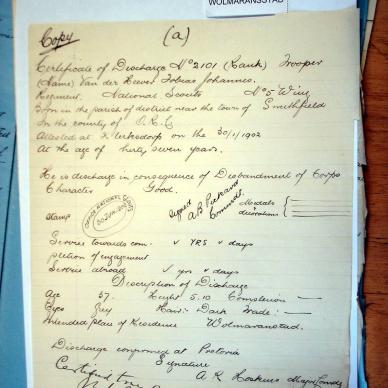 WOLMARANSSTAD
Copy
(a)
Certificate of Discharge No 2101 (Rank) Trooper
(Name) Van der Heever Tobias Johannes.
Regiment. National Scouts No 5 Wing
Born in the parish of district near the town of Smithfield
In the county of O.R.C
Attested at Klerksdorp on the 30/1/1902
At the age of thirty seven years.
He is discharge in consequence of Disbandment of Corps
Character Good.
Stamp
OFFICE NATIONAL SCOUTS
Signed
A B
Commdt.
Medals
decorations
Service towards com: v yrs v days
pletion of engagement
Service abroad v yrs v days
Description of Discharge
Age 37 Height 5.10 Complexion —
Eyes Grey Hair: Dark Trade: —
Intended place of Residence Wolmaranstad.
Discharge confirmed at Pretoria
Signature
A R Hoskins Major Comdg
Certified true